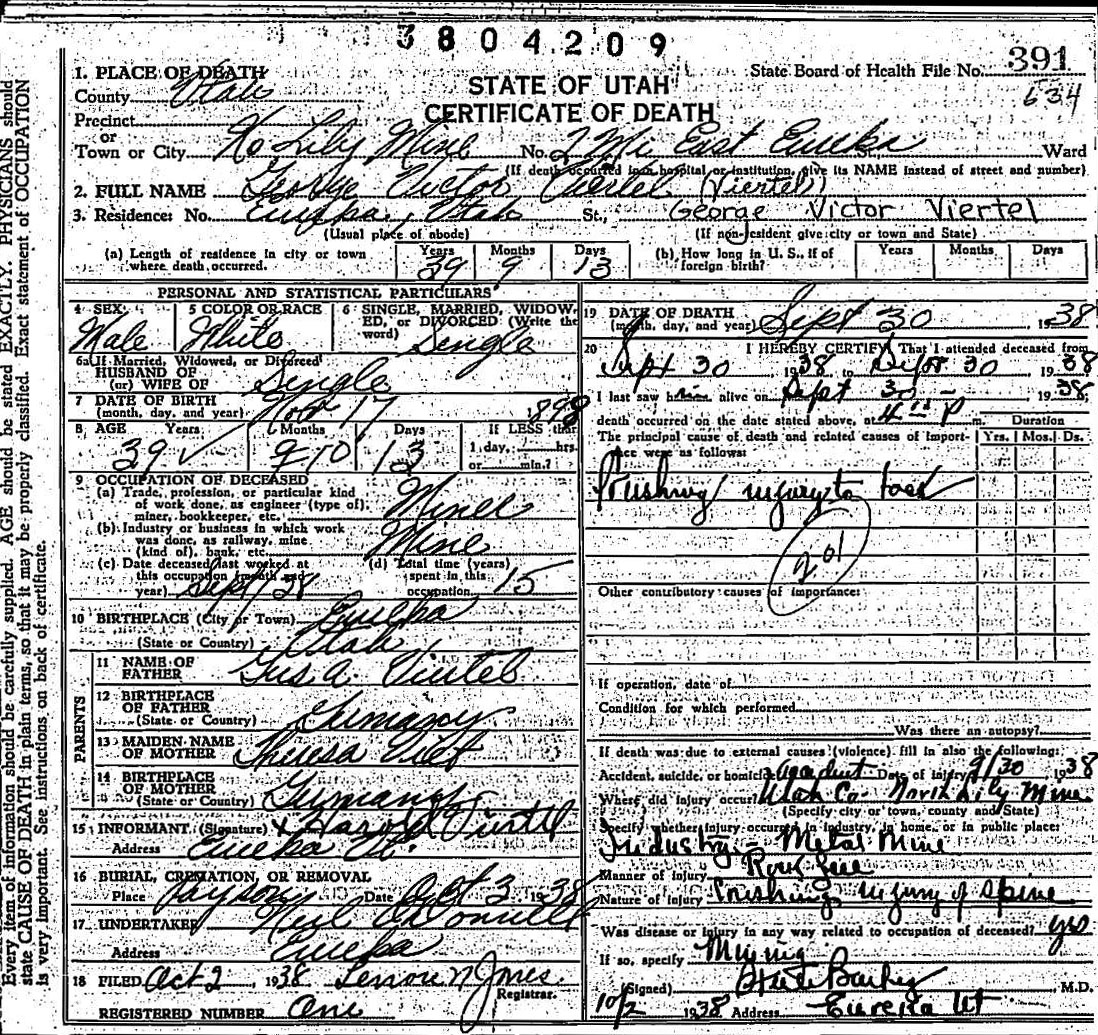 3804209
State Board of Health File No. 391
634
STATE OF UTAH
CERTIFICATE OF DEATH
1. PLACE OF DEATH
County Utah
Precinct
or
Town or City No Lily Mine No. 2 Mi East Eureka St., Ward
(If death occurred in a hospital or institution, give its NAME instead of street and number)
2. FULL NAME George Victor Viertel (Viertel)
3. Residence: No. Eureka, Utah St., George Victor Viertel
(Usual place of abode) (If non-resident give city or town and State)
(a) Length of residence in city or town where death occurred. Years 39 Months 9 Days 13
(b) How long in U. S., if of foreign birth? Years Months Days
PERSONAL AND STATISTICAL PARTICULARS
4 SEX Male
5 COLOR OR RACE White
6 SINGLE, MARRIED, WIDOWED, or DIVORCED (Write the word) Single
6a If Married, Widowed, or Divorced
HUSBAND OF
(or) WIFE OF Single
7 DATE OF BIRTH
(month, day, and year) Nov 17 1898
8 AGE Years 39 Months 9 10 Days 13 If LESS than 1 day, hrs. or min.?
9 OCCUPATION OF DECEASED
(a) Trade, profession, or particular kind
of work done, as engineer (type of),
miner, bookkeeper, etc. Miner
(b) Industry or business in which work
was done, as railway, mine
(kind of), bank, etc. Mine
(c) Date deceased last worked at
this occupation (month and
year) Sept
(d) Total time (years)
spent in this
occupation 15
10 BIRTHPLACE (City or Town) Eureka
(State or Country) Utah
PARENTS
11 NAME OF
FATHER Gus A. Viertel
12 BIRTHPLACE
OF FATHER
(State or Country) Germany
13 MAIDEN NAME
OF MOTHER Theresa Viet
14 BIRTHPLACE
OF MOTHER
(State or Country) Germany
15 INFORMANT (Signature) x Harold Viertel
Address Eureka Ut.
16 BURIAL, CREMATION, OR REMOVAL
Place Payson Date Oct 3 1938
17 UNDERTAKER
Address Eureka
18 FILED Oct 2 1938 Lenore N Jones
Registrar.
REGISTERED NUMBER One
19 DATE OF DEATH
(month, day, and year) Sept 30, 1938
20 I HEREBY CERTIFY That I attended deceased from
Sept 30 1938 to Sept 30, 1938
I last saw him alive on Sept 30 - 1938;
death occurred on the date stated above, at 4 P m.
Duration
The principal cause of death and related causes of importance were as follows: Yrs. Mos. Ds.
Crushing injury to back
201
Other contributory causes of importance:
If operation, date of
Condition for which performed
Was there an autopsy?
If death was due to external causes (violence) fill in also the following:
Accident, suicide, or homicide accident Date of injury 9/30 1938
Where did injury occur? Utah Co- North Lily Mine
(Specify city or town, county and State)
Specify whether injury occurred in industry, in home, or in public place:
Industry - Metal Mine
Manner of injury
Nature of injury Crushing injury of spine
Was disease or injury in any way related to occupation of deceased? yes
If so, specify Mining
(Signed) M.D.
10/2 1938 Address Eureka Ut
Every item of information should be carefully supplied. AGE should be stated EXACTLY. PHYSICIANS should
state CAUSE OF DEATH in plain terms, so that it may be properly classified. Exact statement of OCCUPATION
is very important. See instructions on back of certificate.